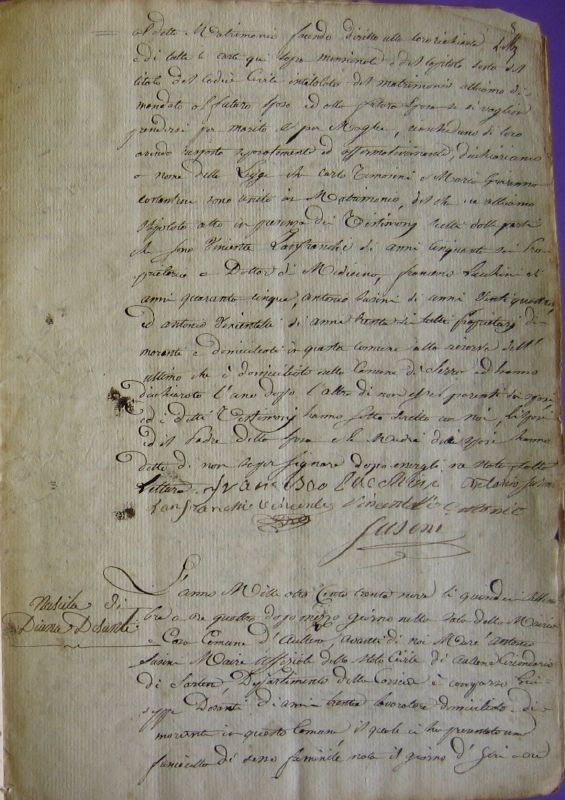 al detto Matrimonio facendo diritto alla loro richiesta
di tutte le carte qui sopra menzionate e del Capitolo sesto del
titolo del Codice Civile intitolato del matrimonio abbiamo di
mandato al futuro sposo ed alla futura sposa se si vogliono
prendersi per marito e per Moglie, ciascheduno di loro
avendo risposto separatamente ed affermativamente, dichiariamo
a nome della Legge che Carlo e Maria Giovanna
sono uniti in Matrimonio, del che ne abbiamo
stipolato atto in presenza dei Testimonj scelti dalle parti
che sono Vincente Lanfranchi di anni cinquanta sei Pro
prietario e Dottor di Medicina, Francesco Lucchini di
anni quaranta cinque Antonio Susini di anni Venti quattro
ed Antonio Vincentelli di anni trenta sei tutti Proprietarj di-
moranti e domiciliati in questa comune alla riserva dell'
ultimo che è domiciliato nella Comune di ed hanno
dichiarato l'uno dopo l'altro di non esser parenti dei sposi
ed i detti Testimonj hanno sotto scritto con noi, li sposi
ed il Padre dello sposo e la Madre della sposa hanno
detto di non saper signare dopo avergli ne stato fatto
Lettura Francesco Lucchini Susini
Lanfranchi Vincente Vincentelli Antonio
Susini
Nascita di
Diana Desanti
L'anno Mille otto Cento trenta nove li quindeci
bre a ore quattro dopo mezzo giorno nella Sala della Maeria
e Casa Comune d'Aullene davanti di noi Mare Antonio
Susini Maire Uffiziale dello Stato Civile di Aullene Circondario
di Sartene, Dipartimento della Corsica è comparso Giu-
seppe Desanti di anni trenta lavoratore domiciliato di-
morante in questa Comune il quale ci ha presentato una
fanciulla di sesso feminile nata il giorno d'jeri a ore